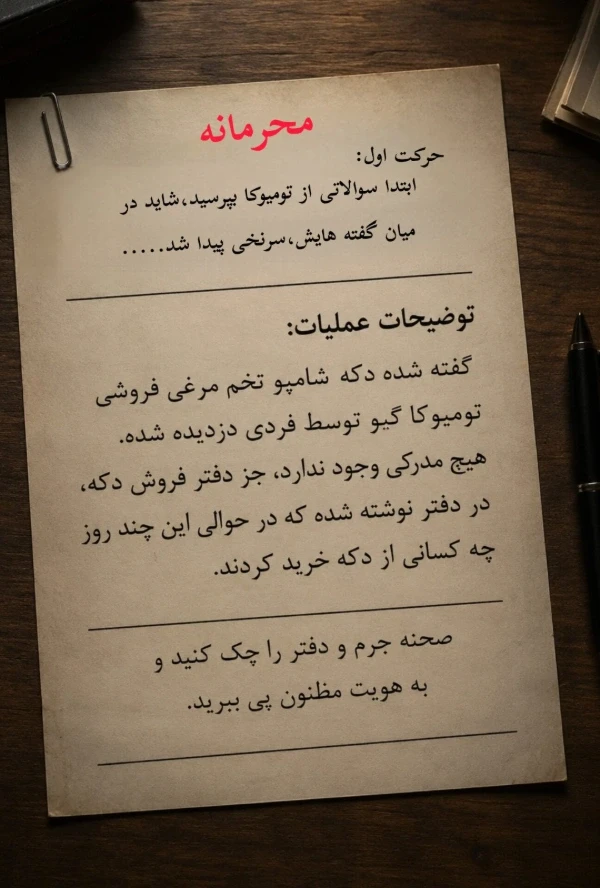 محرمانه
حرکت اول:
ابتدا سوالاتی از تومیوکا بپرسید،شاید در
میان گفته هایش،سرنخی پیدا شد.....
توضیحات عملیات:
گفته شده دکه شامپو تخم مرغی فروشی
تومیوکا گیو توسط فردی دزدیده شده.
هیچ مدرکی وجود ندارد، جز دفتر فروش دکه،
در دفتر نوشته شده که در حوالی این چند روز
چه کسانی از دکه خرید کردند.
صحنه جرم و دفتر را چک کنید و
به هویت مظنون پی ببرید.